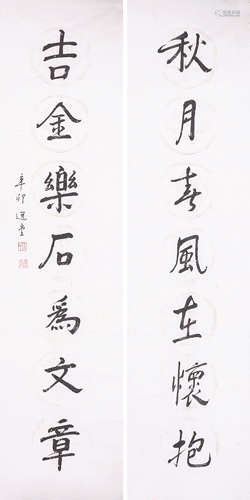 秋月春風在懷抱
吉金樂石爲文章
辛卯 選堂